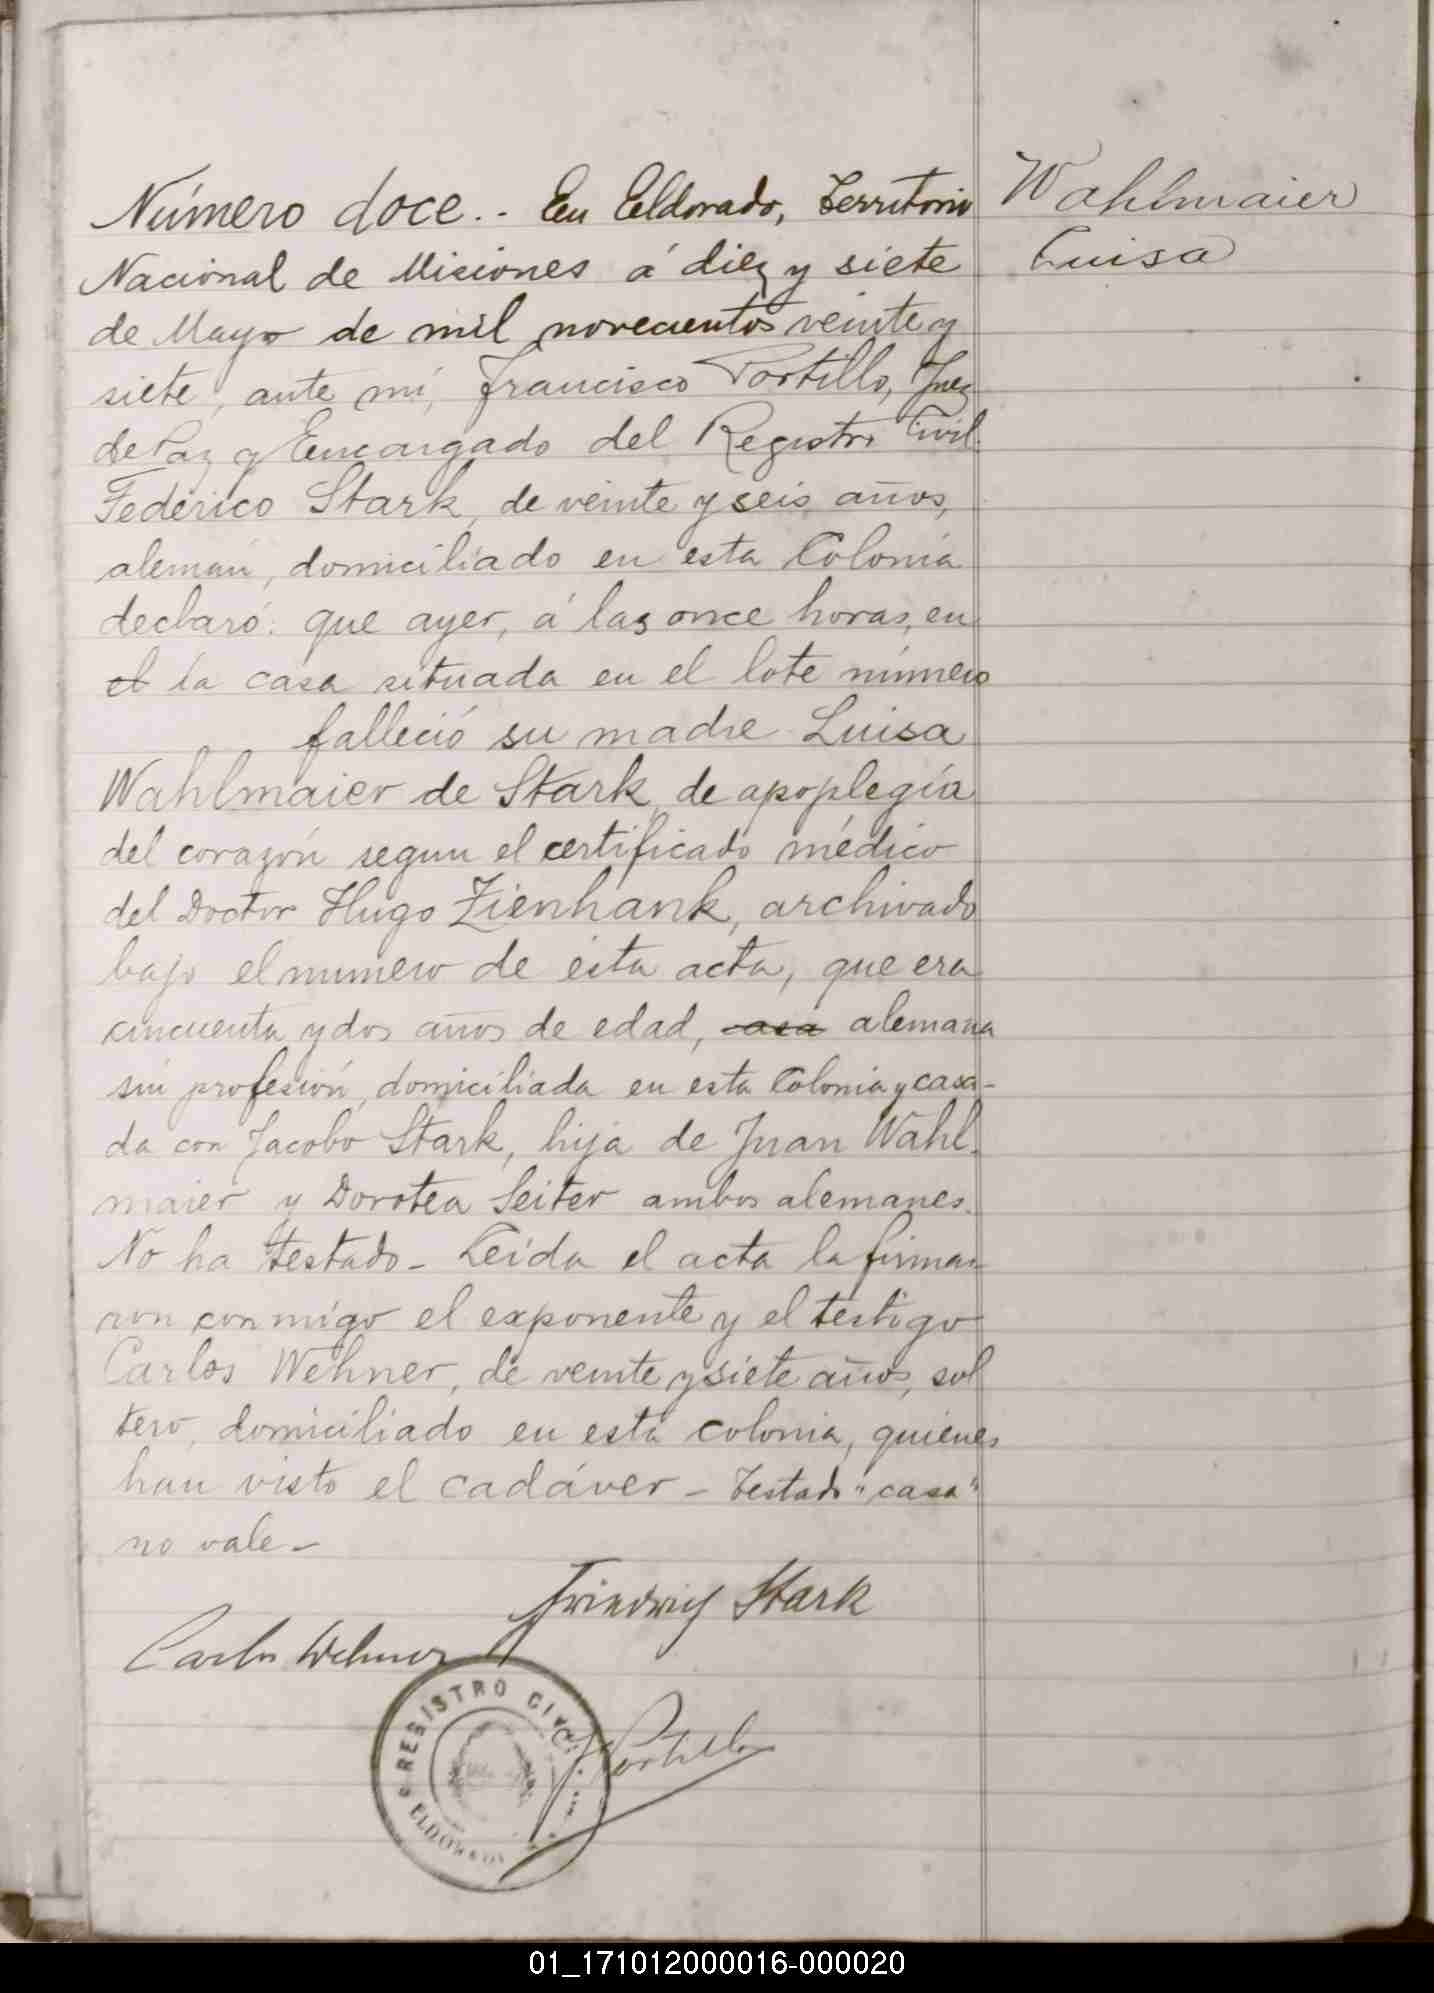 Número doce.- En Eldorado, Territorio
Nacional de Misiones á diez y siete
de Mayo de mil novecientos veinte y
siete, ante mí, Francisco Portillo, Juez
de Paz y Encargado del Registro Civil.
Federico Stark, de veinte y seis años,
alemán, domiciliado en esta Colonia
declaró: que ayer, á las once horas, en
el la casa situada en el lote número
falleció su madre Luisa
Wahlmaier de Stark, de apoplegía
del corazón segun el certificado médico
del Doctor Hugo Zienhank, archivado
bajo el numero de esta acta, que era
cincuenta y dos años de edad, casa alemana
sin profesión, domiciliada en esta Colonia y casa-
da con Jacobo Stark, hija de Juan Wahl-
maier y Dorotea Seiter ambos alemanes.
No ha testado- Leída el acta la firma-
ron conmigo el exponente y el testigo
Carlos Wehner, de veinte y siete años, sol
tero, domiciliado en esta colonia, quienes
han visto el cadáver - Testado "casa"
no vale-
Friedrich Stark
Carlos Wehner
REGISTRO CIVIL
F Portillo
ELDORADO
Wahlmaier
Luisa
01_171012000016-000020